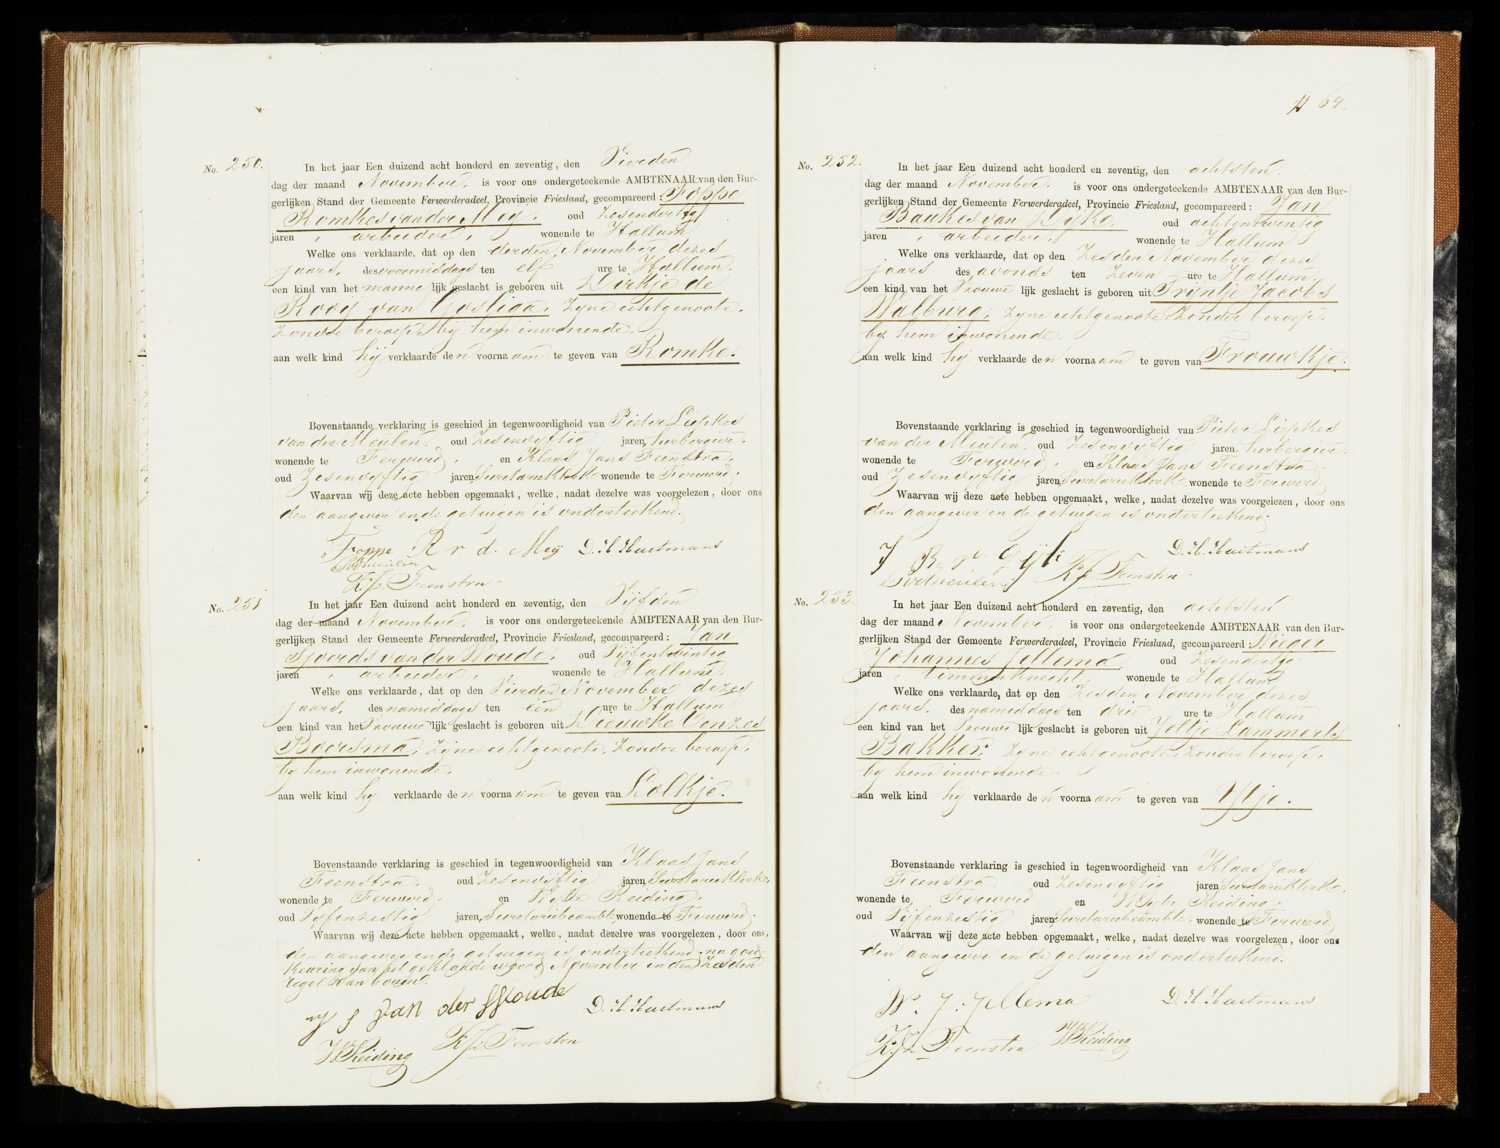 No. 250. In het jaar Een duizend acht honderd en zeventig, den Vierden
dag der maand November, is voor ons ondergeteekende AMBTENAAR van den Bur-
gerlijken Stand der Gemeente Ferwerderadeel, Provincie Friesland, gecompareerd: Foppe
Romkes van der Meij, oud zesendertig
jaren, arbeider, wonende te Hallum
Welke ons verklaarde, dat op den derden November dezes
jaars, des voormiddags ten elf ure te Hallum
een kind van het manne lijk geslacht is geboren uit Dirkje de
Rooy van Oostiga, zyne echtgenoote,
zonder beroep, by hem inwonende.
aan welk kind hij verklaarde den voornaam te geven van Romke.
Bovenstaande verklaring is geschied in tegenwoordigheid van Pieter Lieppkes
van der Meulen, oud zesenvyftig jaren, herbergier,
wonende te Ferwerd, en Klaas Jans Feenstra,
oud zesenvyftig jaren, Secretarieklerk wonende te Ferwerd;
Waarvan wij deze acte hebben opgemaakt, welke, nadat dezelve was voorgelezen, door ons
den aangever en de getuigen is onderteekend.
Foppe R v d. Meij D. H. Hartmans
K. J. Feenstra
No. 251 In het jaar Een duizend acht honderd en zeventig, den Vijfden
dag der maand November, is voor ons ondergeteekende AMBTENAAR van den Bur-
gerlijken Stand der Gemeente Ferwerderadeel, Provincie Friesland, gecompareerd: Jan
Sjoerds van der Woude, oud Vijfentwintig
jaren, arbeider, wonende te Hallum
Welke ons verklaarde, dat op den Vierden November dezes
jaars, des namiddags ten een ure te Hallum
een kind van het Vrouwe lijk geslacht is geboren uit Lieuwke Oenzes
Boersma, zyne echtgenoote, zonder beroep,
by hem inwonende.
aan welk kind hij verklaarde den voornaam te geven van Lolkje.
Bovenstaande verklaring is geschied in tegenwoordigheid van Klaas Jans
Feenstra oud zesenvyftig jaren, Secretarieklerk,
wonende te Ferwerd, en Wytze Reiding,
oud Vyfenzestig jaren, Secretariebeambte wonende te Ferwerd;
Waarvan wij deze acte hebben opgemaakt, welke, nadat dezelve was voorgelezen, door ons,
den aangever en de getuigen is onderteekend, na goed
keuring van het geklapde woord November in den zesden
regel van boven.
J S van der Woude D. H. Hartmans
W Reiding K. J. Feenstra
64.
No. 252. In het jaar Een duizend acht honderd en zeventig, den achtsten
dag der maand November, is voor ons ondergeteekende AMBTENAAR van den Bur-
gerlijken Stand der Gemeente Ferwerderadeel, Provincie Friesland, gecompareerd: Jan
Baukes van Dyke, oud achtentwintig
jaren, arbeider, wonende te Hallum
Welke ons verklaarde, dat op den Zesden November dezes
jaars des avonds ten zeven ure te Hallum
een kind van het Vrouwe lijk geslacht is geboren uit Trijntje Jacobs
Walburg, zyne echtgenoote, zonder beroep,
by hem inwonende.
aan welk kind hij verklaarde den voornaam te geven van Frouwkje.
Bovenstaande verklaring is geschied in tegenwoordigheid van Pieter Lieppkes
van der Meulen, oud zesenvyftig jaren, herbergier,
wonende te Ferwerd, en Klaas Jans Feenstra
oud zesenvyftig jaren, Secretarieklerk wonende te Ferwerd;
Waarvan wij deze acte hebben opgemaakt, welke, nadat dezelve was voorgelezen, door ons
den aangever en de getuigen is onderteekend.
D. H. Hartmans
K. J. Feenstra
No. 253. In het jaar Een duizend acht honderd en zeventig, den achtsten
dag der maand November, is voor ons ondergeteekende AMBTENAAR van den Bur-
gerlijken Stand der Gemeente Ferwerderadeel, Provincie Friesland, gecompareerd: Wieger
Johannes Jellema oud zesendertig
jaren, timmerknecht, wonende te Hallum
Welke ons verklaarde, dat op den Zesden November dezes
jaars, des namiddags ten drie ure te Hallum
een kind van het Vrouwe lijk geslacht is geboren uit Yeltje Lammerts
Bakker, zyne echtgenoote, zonder beroep,
by hem inwonende
aan welk kind hij verklaarde den voornaam te geven van Ytje.
Bovenstaande verklaring is geschied in tegenwoordigheid van Klaas Jans
Feenstra oud zesenvyftig jaren, Secretarieklerk,
wonende te Ferwerd en Wytze Reiding,
oud Vyfenzestig jaren, Secretariebeambte wonende te Ferwerd;
Waarvan wij deze acte hebben opgemaakt, welke, nadat dezelve was voorgelezen, door ons
den aangever en de getuigen is onderteekend.
W. J. Jellema D. H. Hartmans
K. J. Feenstra W Reiding